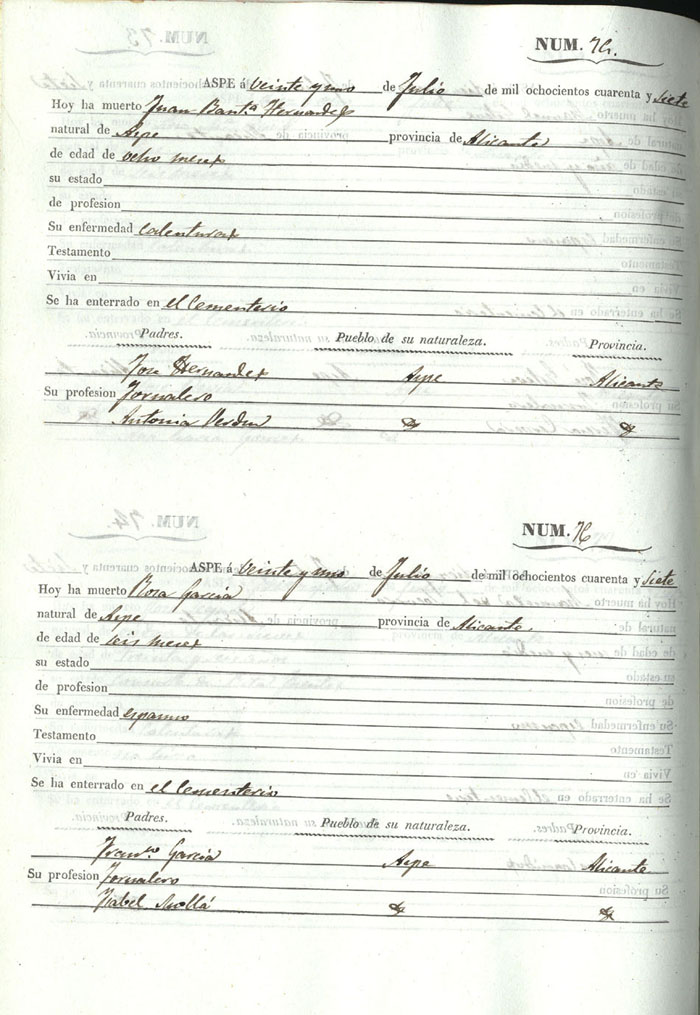 NUM. 75.
ASPE á veinte y uno de Julio de mil ochocientos cuarenta y siete
Hoy ha muerto Juan Baut.ª Hernandez
natural de Aspe provincia de Alicante
de edad de ocho meses
su estado
de profesion
Su enfermedad calenturas
Testamento
Vivia en
Se ha enterrado en el Cementerio
Padres. Pueblo de su naturaleza. Provincia.
Jose Hernandez Aspe Alicante
Su profesion Jornalero
Antonia Verdu
NUM. 76
ASPE á veinte y uno de Julio de mil ochocientos cuarenta y siete
Hoy ha muerto Rosa Garcia
natural de Aspe provincia de Alicante.
de edad de seis meses
su estado
de profesion
Su enfermedad espasmo
Testamento
Vivia en
Se ha enterrado en el Cementerio
Padres. Pueblo de su naturaleza. Provincia.
Fran.co Garcia Aspe Alicante
Su profesion Jornalero
Ysabel Mollá